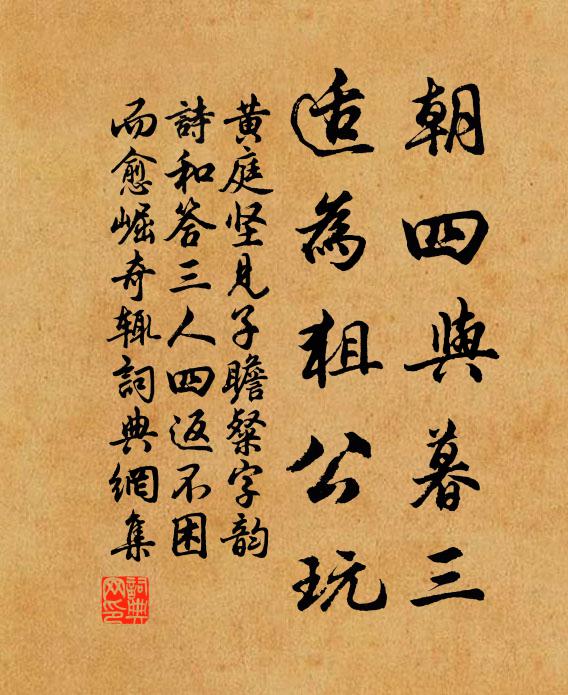 朝四與暮三
适為狙公玩
黄庭坚見子瞻粲字韵
詩和答三人四返不困
而愈崛奇輒詞典網集
詞典網印